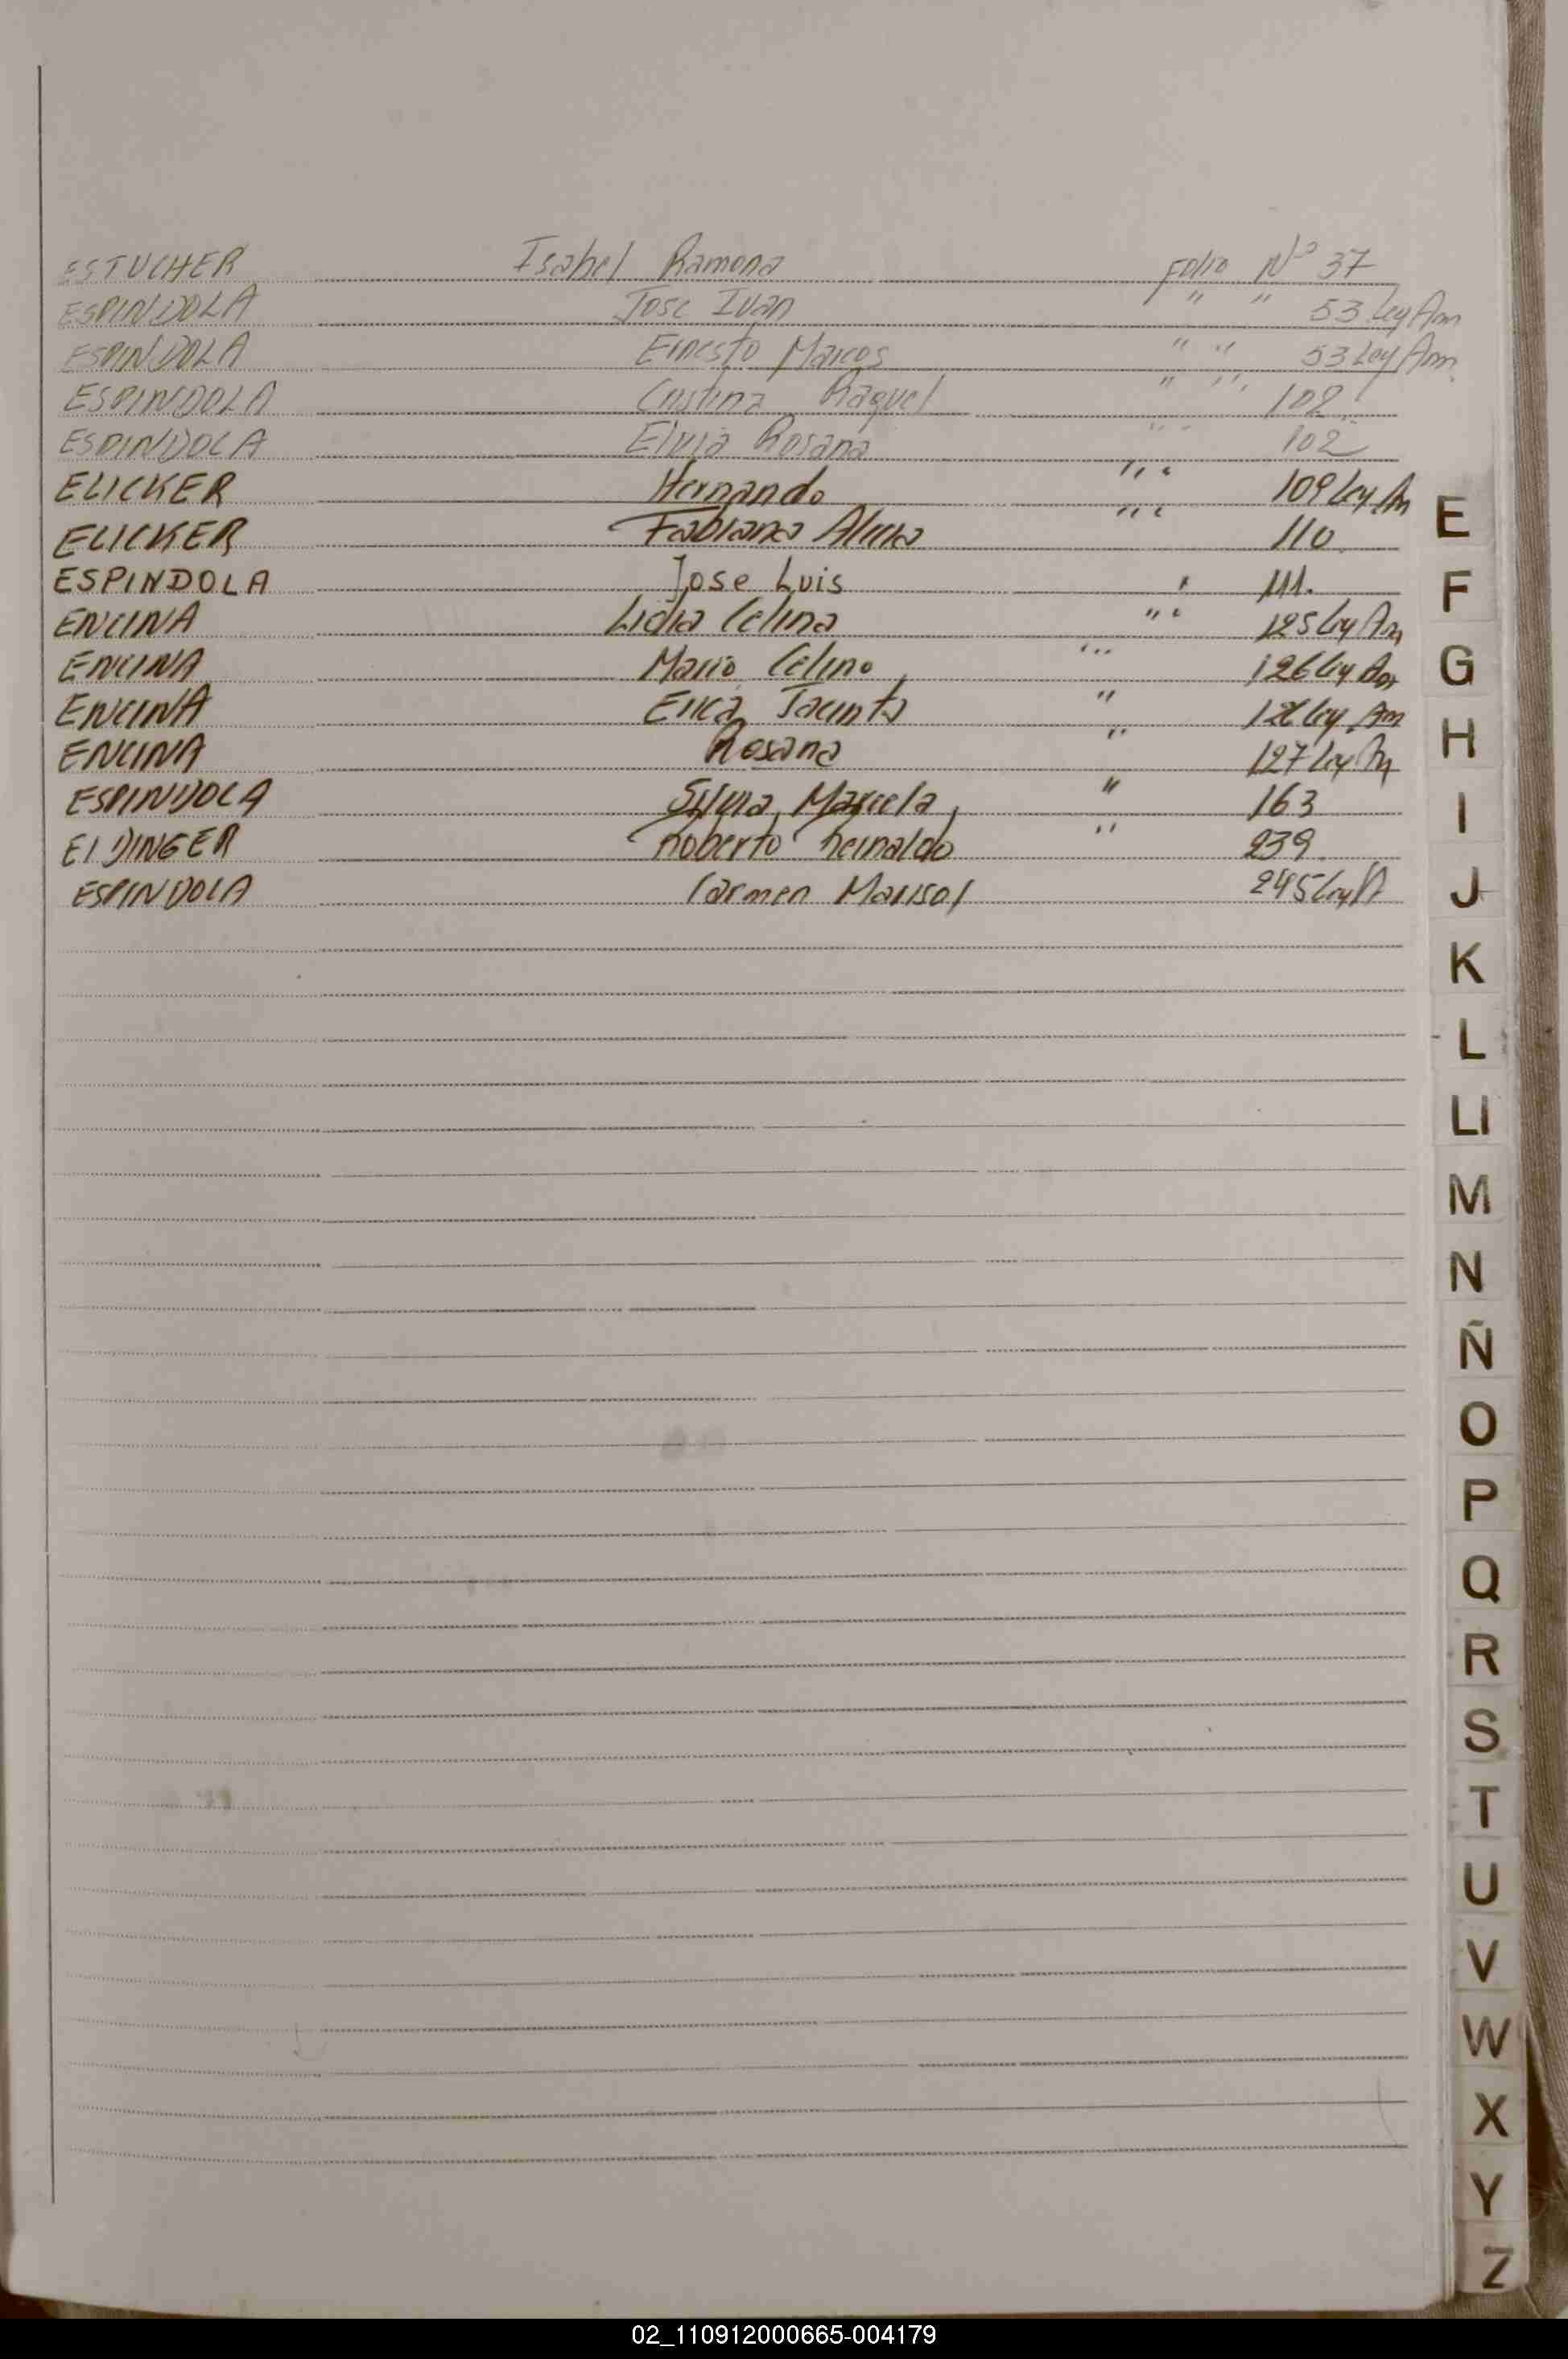 ESTUCHER Isabel Ramona Folio Nº 37
ESPINDOLA Jose Ivan " " 53 Ley Am
ESPINDOLA Ernesto Marcos " " 53 Ley Am
ESPINDOLA Cristina Raquel " " 102
ESPINDOLA Elvia Rosana " " 102
ELICKER Hernando " " 109 Ley Am
ELICKER Fabiana Alicia " " 110
ESPINDOLA Jose Luis " 111.
ENCINA Lidia Celina " " 125 Ley Am
ENCINA Mario Celino " " 126 Ley Am
ENCINA Erica Jacinta " 126 Ley Am
ENCINA Rosana " 127 Ley Am
ESPINDOLA Silvia Marcela " 163
EIDINGER Roberto Reinaldo " 239
ESPINDOLA Carmen Marisol 245 Ley A
E
F
G
H
I
J
K
L
Ll
M
N
Ñ
O
P
Q
R
S
T
U
V
W
X
Y
Z
02_110912000665-004179